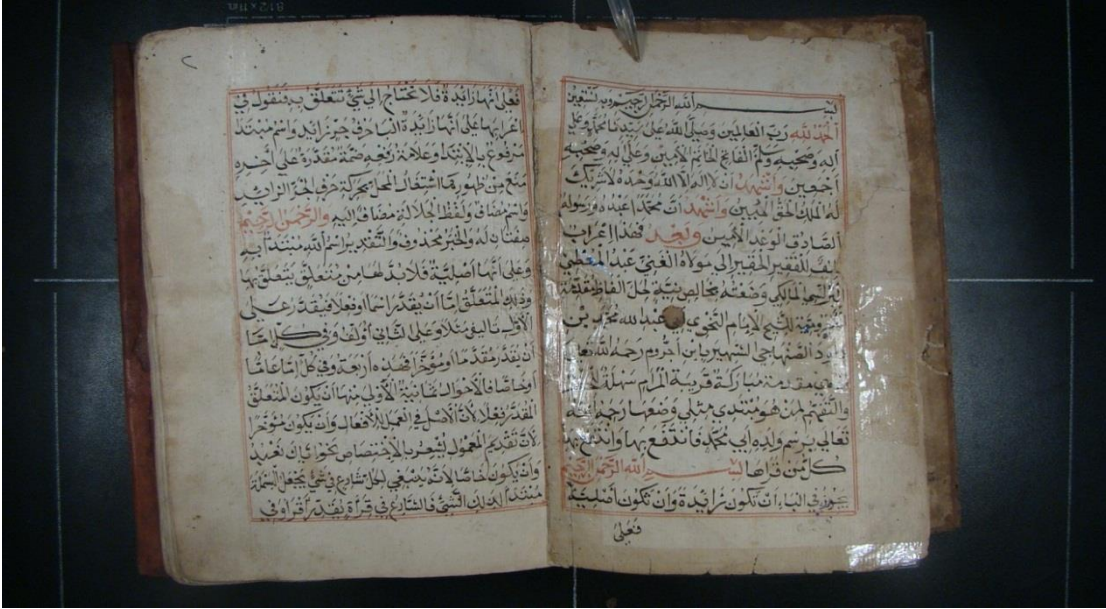 بسم الله الرحمن الرحيم وبه نستعين
الحمد لله رب العالمين وصلى الله على سيدنا محمد وعلى
اله وصحبه وسلم الفاتح الخاتم الامين وعلى اله وصحبه
اجمعين واشهد ان لا اله الا الله وحده لا شريك
له الملك الحق المبين واشهد ان محمدا عبده ورسوله
الصادق الوعد الامين وبعد فهذا اعراب
الفقير الحقير الى مولاه الغني عبد المعطي
المالكي وضعته بخالص نية لحل الفاظ مقدمة
للشيخ الامام النحوي ابي عبد الله محمد بن
الصنهاجي الشهير بابن اجروم رحمه الله تعالى
مقدمة مباركة قريبة المرام سهلة
والتفهم لمن هو مبتدي مثلي وضعها رحمه الله
تعالى برسم ولده ابي محمد فانتفع بها وانتفع بها
كل من قراها بسم الله الرحمن الرحيم
يجوز في الباء ان تكون زائدة وان تكون اصلية
فعلى
٢
فعلى انها زائدة فلا تحتاج الى شي تتعلق به فنقول في
اعرابها على انها زائدة الباء حرف جر زائد واسم مبتدا
مرفوع بالابتدا وعلامة رفعه ضمة مقدرة على اخره
منع من ظهورها اشتغال المحل بحركة حرف الجر الزائد
واسم مضاف ولفظ الجلالة مضاف اليه والرحمن الرحيم
صفتان له والخبر محذوف والتقدير اسم الله مبتدا به
وعلى انها اصلية فلا بد لها من متعلق يتعلق بها
وذلك المتعلق اما ان يقدر اسما او فعلا فيقدر على
الاول تاليفي مثلا وعلى الثاني اولف وفي كل اما
ان يقدر مقدما او مؤخرا فهذه اربعة وفي كل اما عاما
او خاصا فالاحوال ثمانية الاولى منها ان يكون المتعلق
المقدر فعلا لان الاصل في العمل للافعال وان يكون مؤخرا
لان تقديم المعمول يشعر بالاختصاص نحو اياك نعبد
وان يكون خاصا لانه ينبغي لكل شارع في شي يجعل البسملة
مبتدا لذلك الشي فالشارع في قراة يقدر اقرا وفي